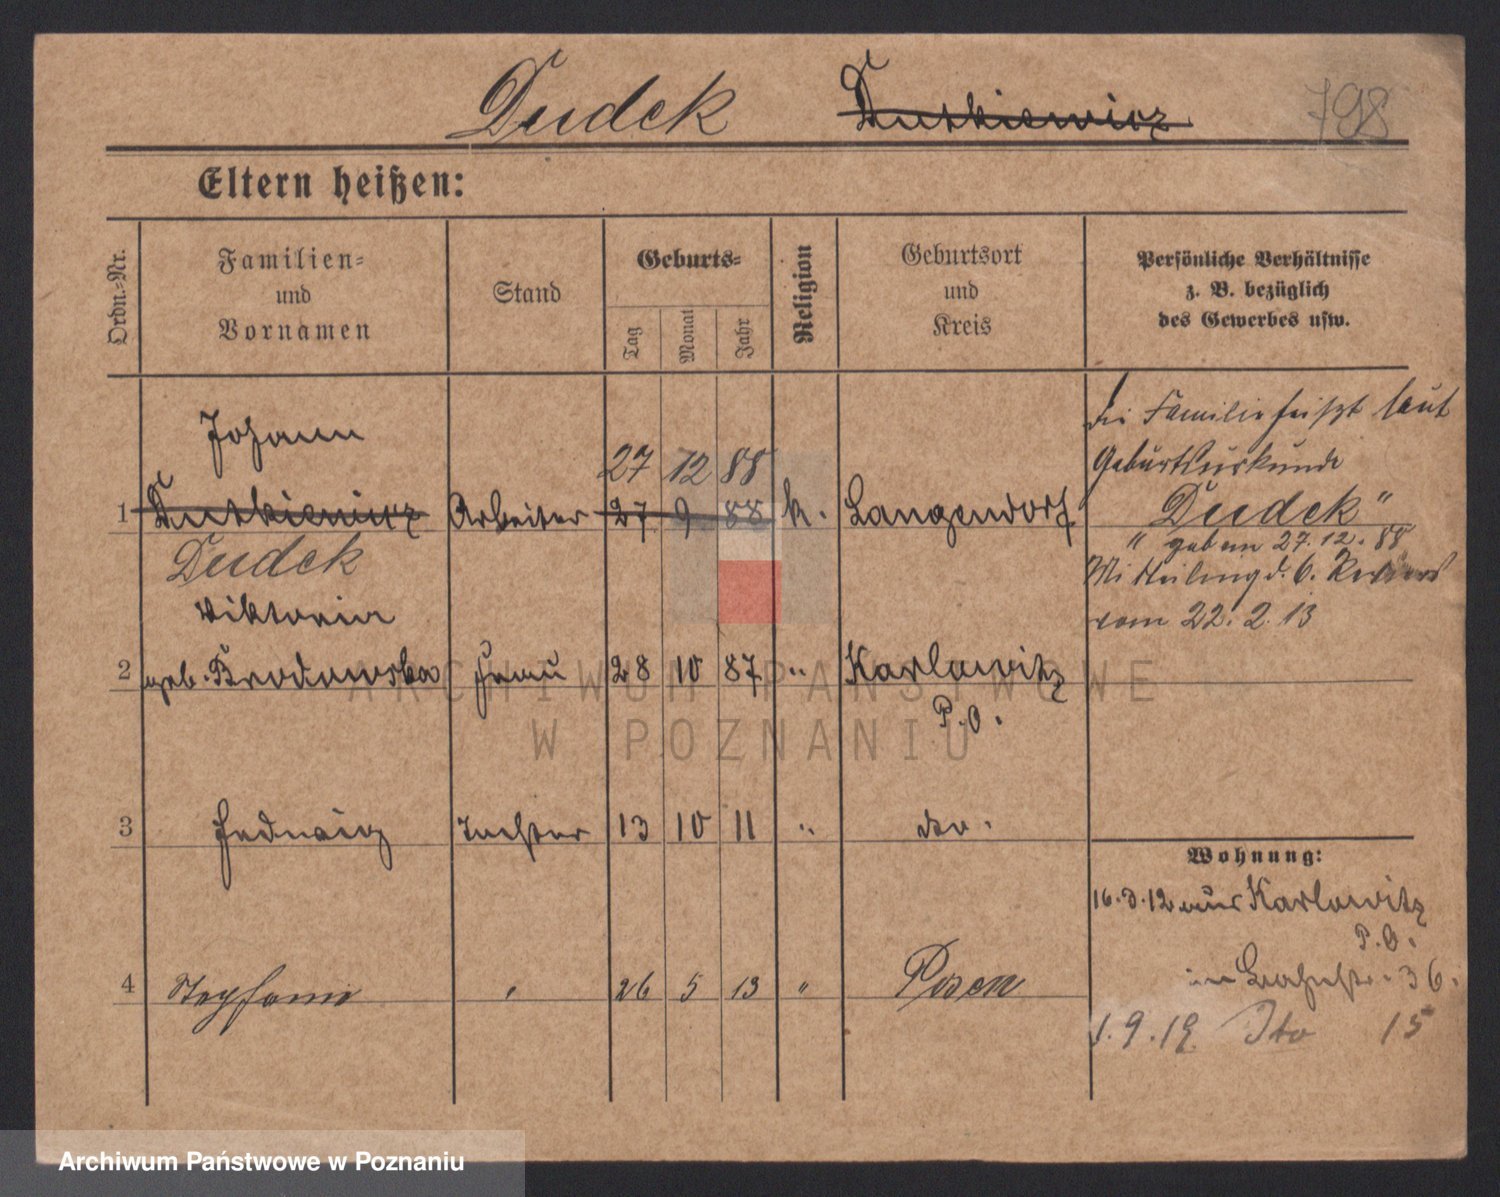 Dudek Dutkiewicz 798
Eltern heißen:
Ordn.-Nr.
Familien-
und
Vornamen
Stand
Geburts-
Tag
Monat
Jahr
Religion
Geburtsort
und
Kreis
Persönliche Verhältnisse
z. B. bezüglich
des Gewerbes usw.
Johann
27 12 88
1 Dutkiewicz Arbeiter 27 9 88 k. Langendorf
Dudek
Viktoria
2 geb. Brodowska Frau 28 10 87 " Karlowitz
P.O.
3 Hedwig Tochter 13 10 11 " do.
4 Stephanie " 26 5 13 " Posen
Die Familie heißt laut
Geburtsurkunde
"Dudek"
geb am 27.12.88
Mitteilung d. 6. Reviers
vom 22.2.13
Wohnung:
16.3.12 aus Karlowitz
P.O.
in 36.
1.9.19 15
ARCHIWUM PAŃSTWOWE
W POZNANIU
Archiwum Państwowe w Poznaniu